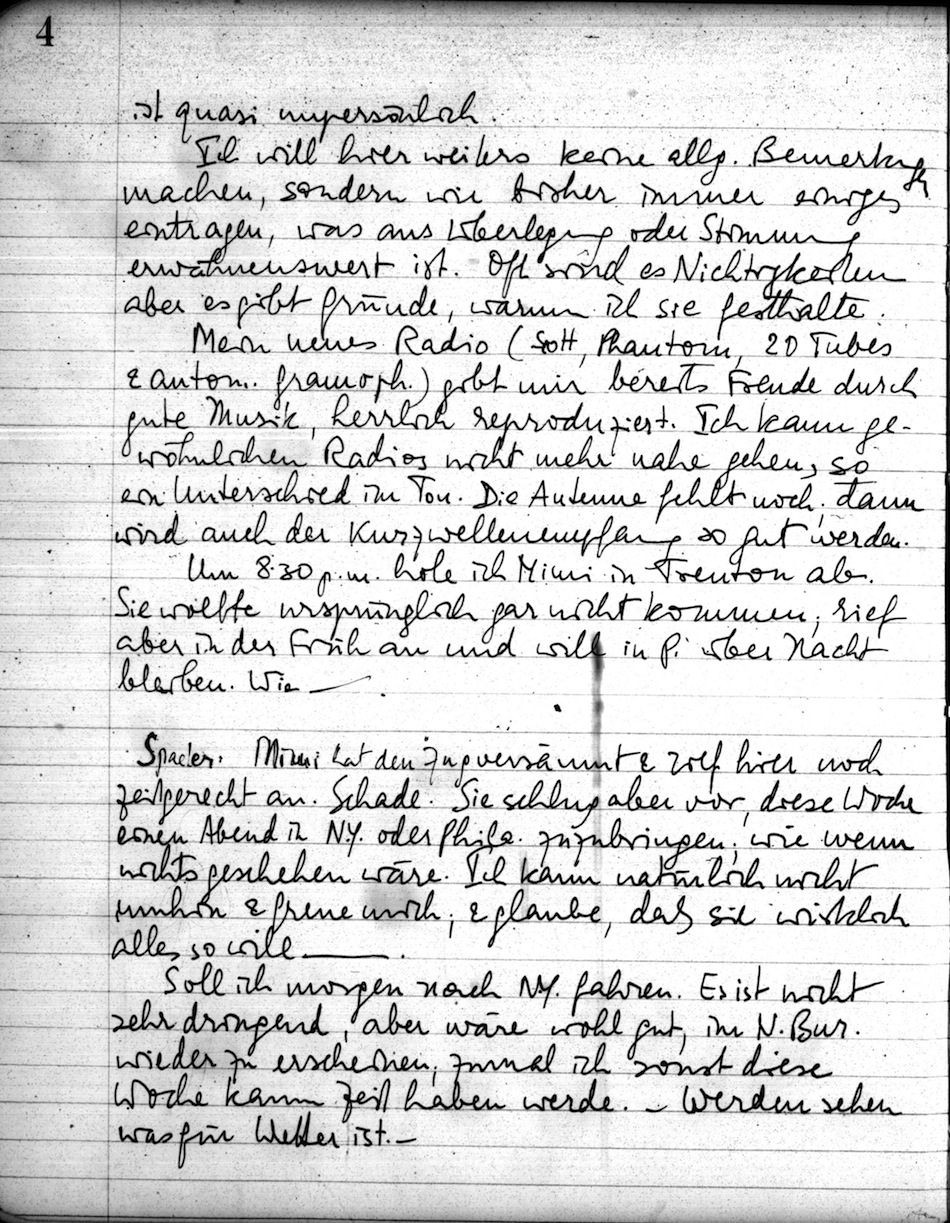 4
ist quasi unpersönlich.
Ich will hier weiters keine allg. Bemerkungen
machen, sondern wie bisher immer einiges
eintragen, was aus Überlegung oder Stimmung
erwähnenswert ist. Oft sind es Nichtigkeiten
aber es gibt Gründe, warum ich sie festhalte.
Mein neues Radio (Scott, Phantom, 20 Tubes
& autom. Gramoph.) gibt mir bereits Freude durch
gute Musik, herrlich reproduziert. Ich kann ge-
wöhnlichen Radios nicht mehr nahe gehen, so
ein Unterschied im Ton. Die Antenne fehlt noch; dann
wird auch der Kurzwellenempfang so gut werden.
Um 8.30 p.m. hole ich Mimi in Trenton ab.
Sie wollte ursprünglich gar nicht kommen, rief
aber in der Früh an und will in P. über Nacht
bleiben. Wie —.
Spaeter. Mimi hat den Zug versäumt & rief hier noch
zeitgerecht an. Schade. Sie schlug aber vor, diese Woche
einen Abend in N.Y. oder Phila. zuzubringen; wie wenn
nichts geschehen wäre. Ich kann natürlich nicht
umhin & freue mich; & glaube, daß sie wirklich
alles so will —.
Soll ich morgen nach N.Y. fahren. Es ist nicht
sehr dringend, aber wäre wohl gut, im N. Bur.
wieder zu erscheinen, zumal ich sonst diese
Woche kaum Zeit haben werde. – Werden sehen
was für Wetter ist. –